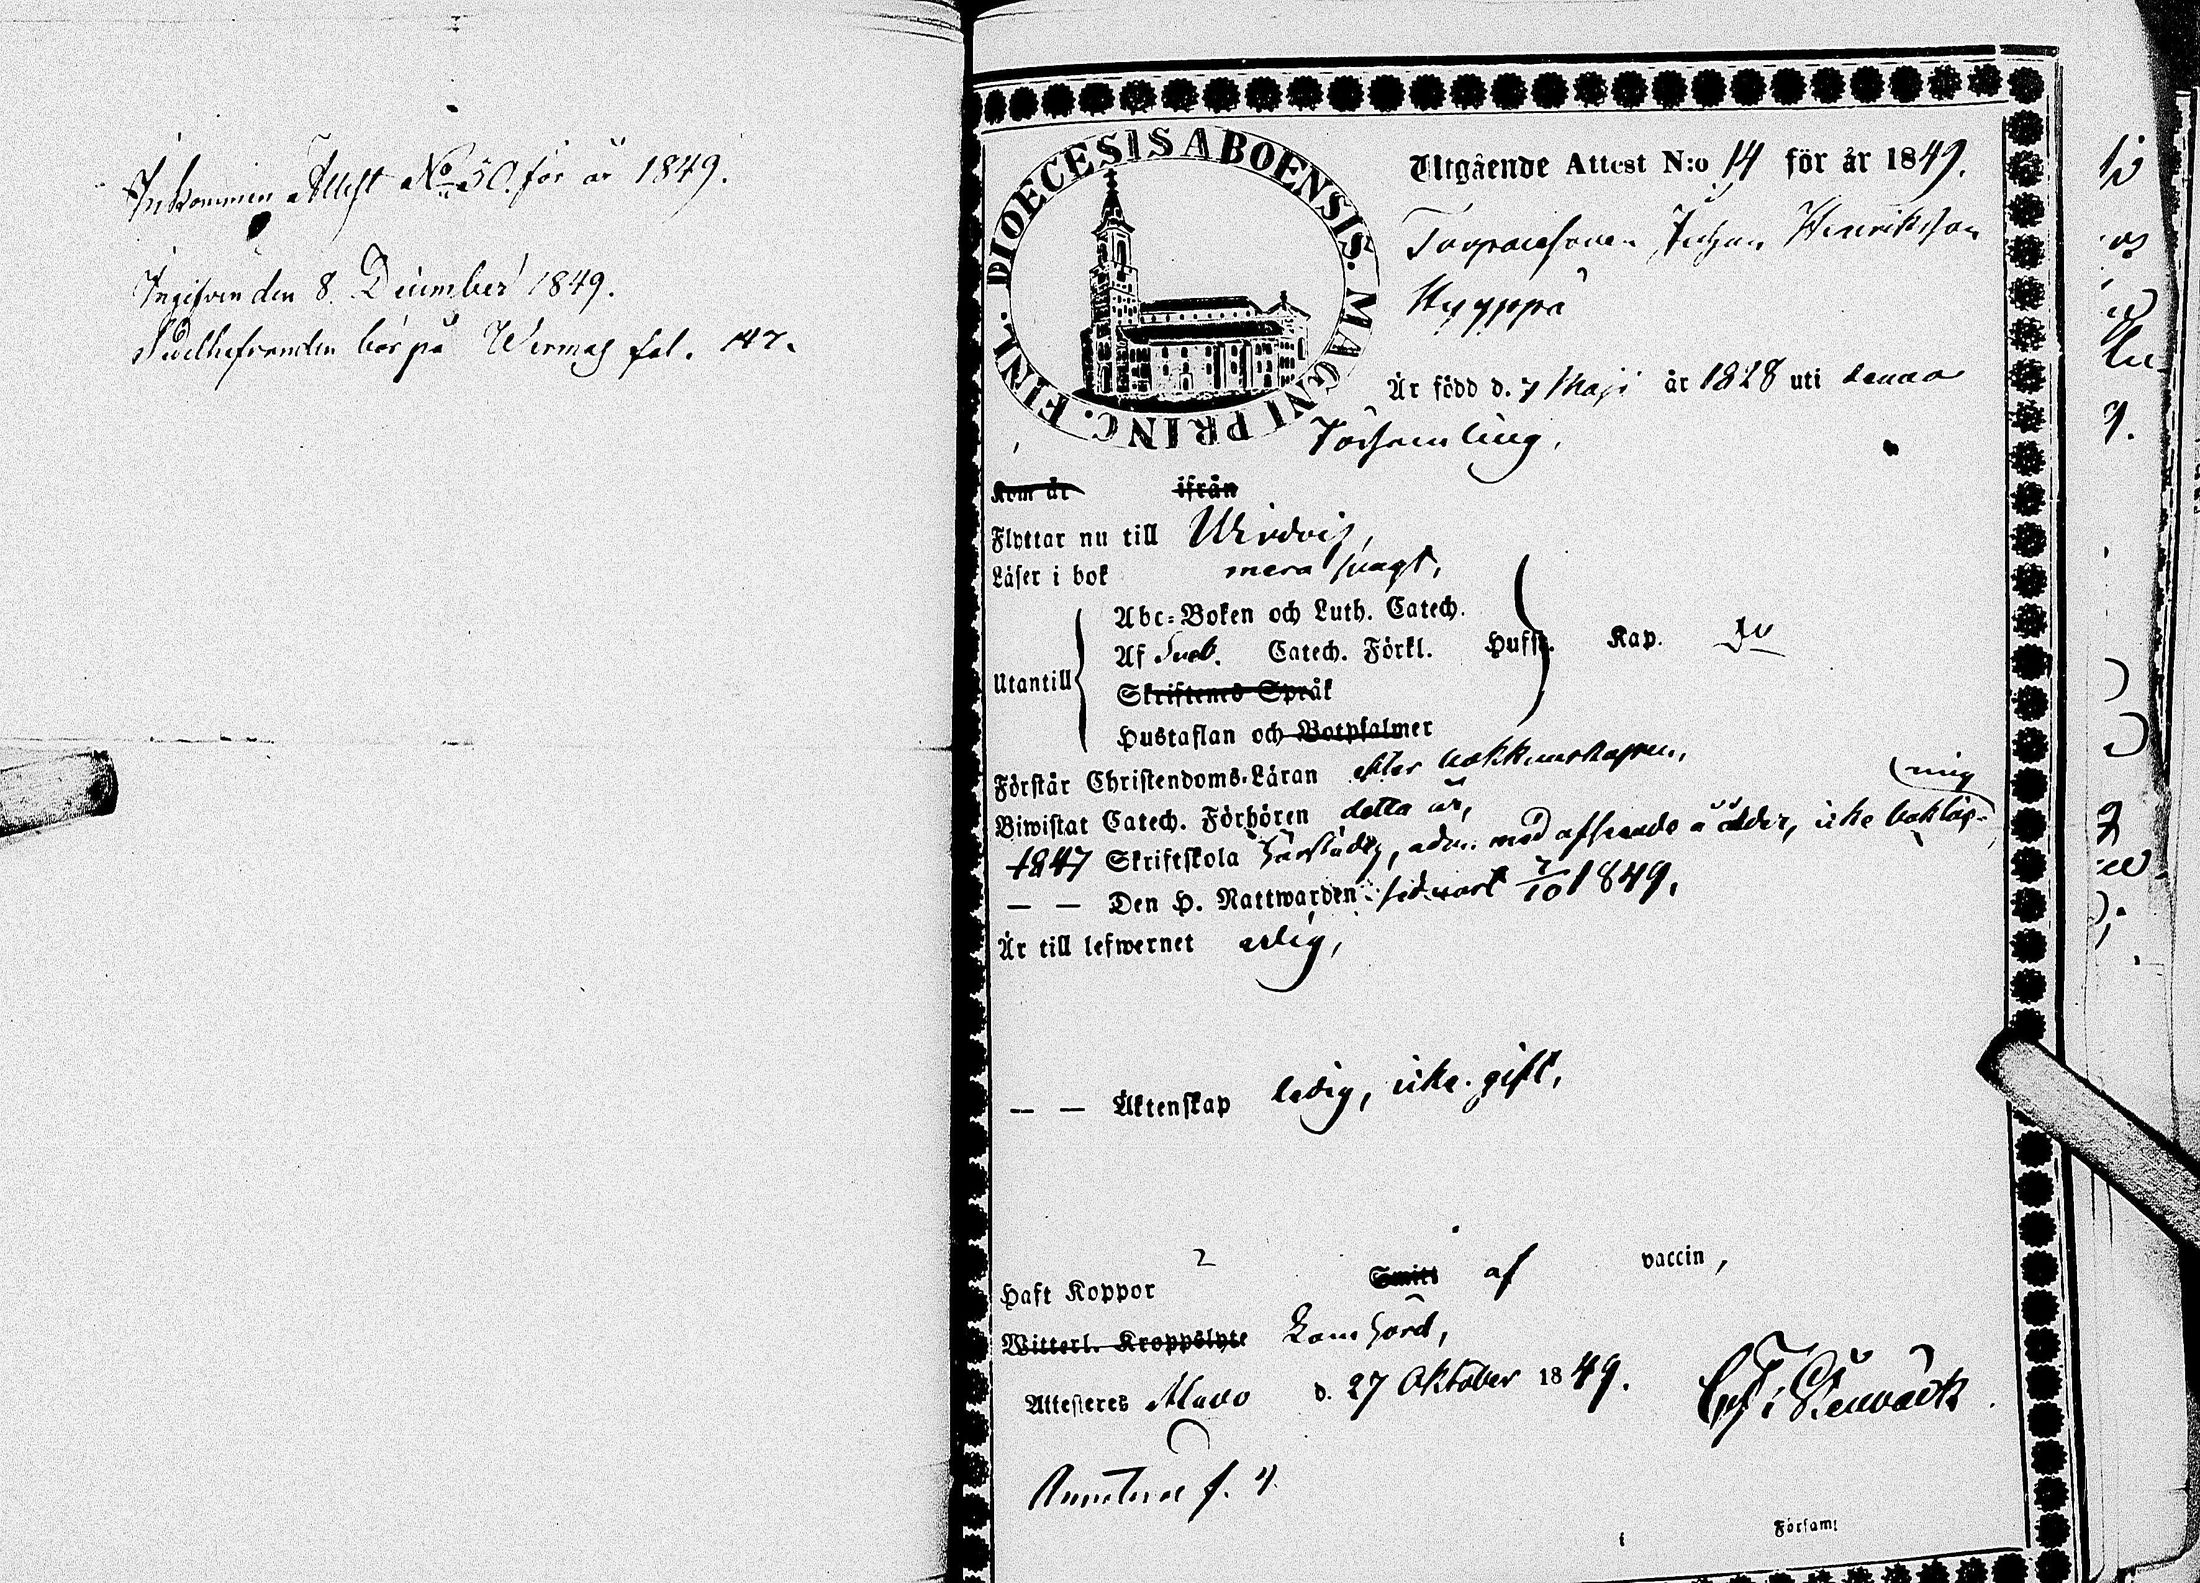 Inkommen Attest No 50. för år 1849.
Ingifven den 8. December 1849.
bör på Wirmas fol. 147.
DIOECESIS ABOENSIS. MAGNI PRINC. FINL.
Utgående Attest N:o 14 för år 1849.
Johan Henriksson
Hyyppä
Är född d. 7 Maji år 1828 uti denna
Församling,
Kom år ifrån
Flyttar nu till
Läser i bok mera svagt,
Abc-Boken och Luth. Catech.
Af Sveb. Catech. Förkl. Hufst. Kap.
Utantill
Skriftenes Språk
Hustaflan och Botpsalmer
Förstår Christendoms-Läran efter bokkunskapen,
Biwistat Catech. Förhören detta år,
1847 Skriftskola härstädes, adm. med afseende å ålder, icke bokläs-
ning
— — Den H. Nattwarden sednast 7/10 1849.
Är till lefwernet ärlig,
— — Äktenskap ledig, icke gift,
Haft Koppor Smitt af vaccin,
Witterl. Kroppslyte Lomhörd,
Attesteres d. 27 Oktober 1849.
f. 4.
Församl